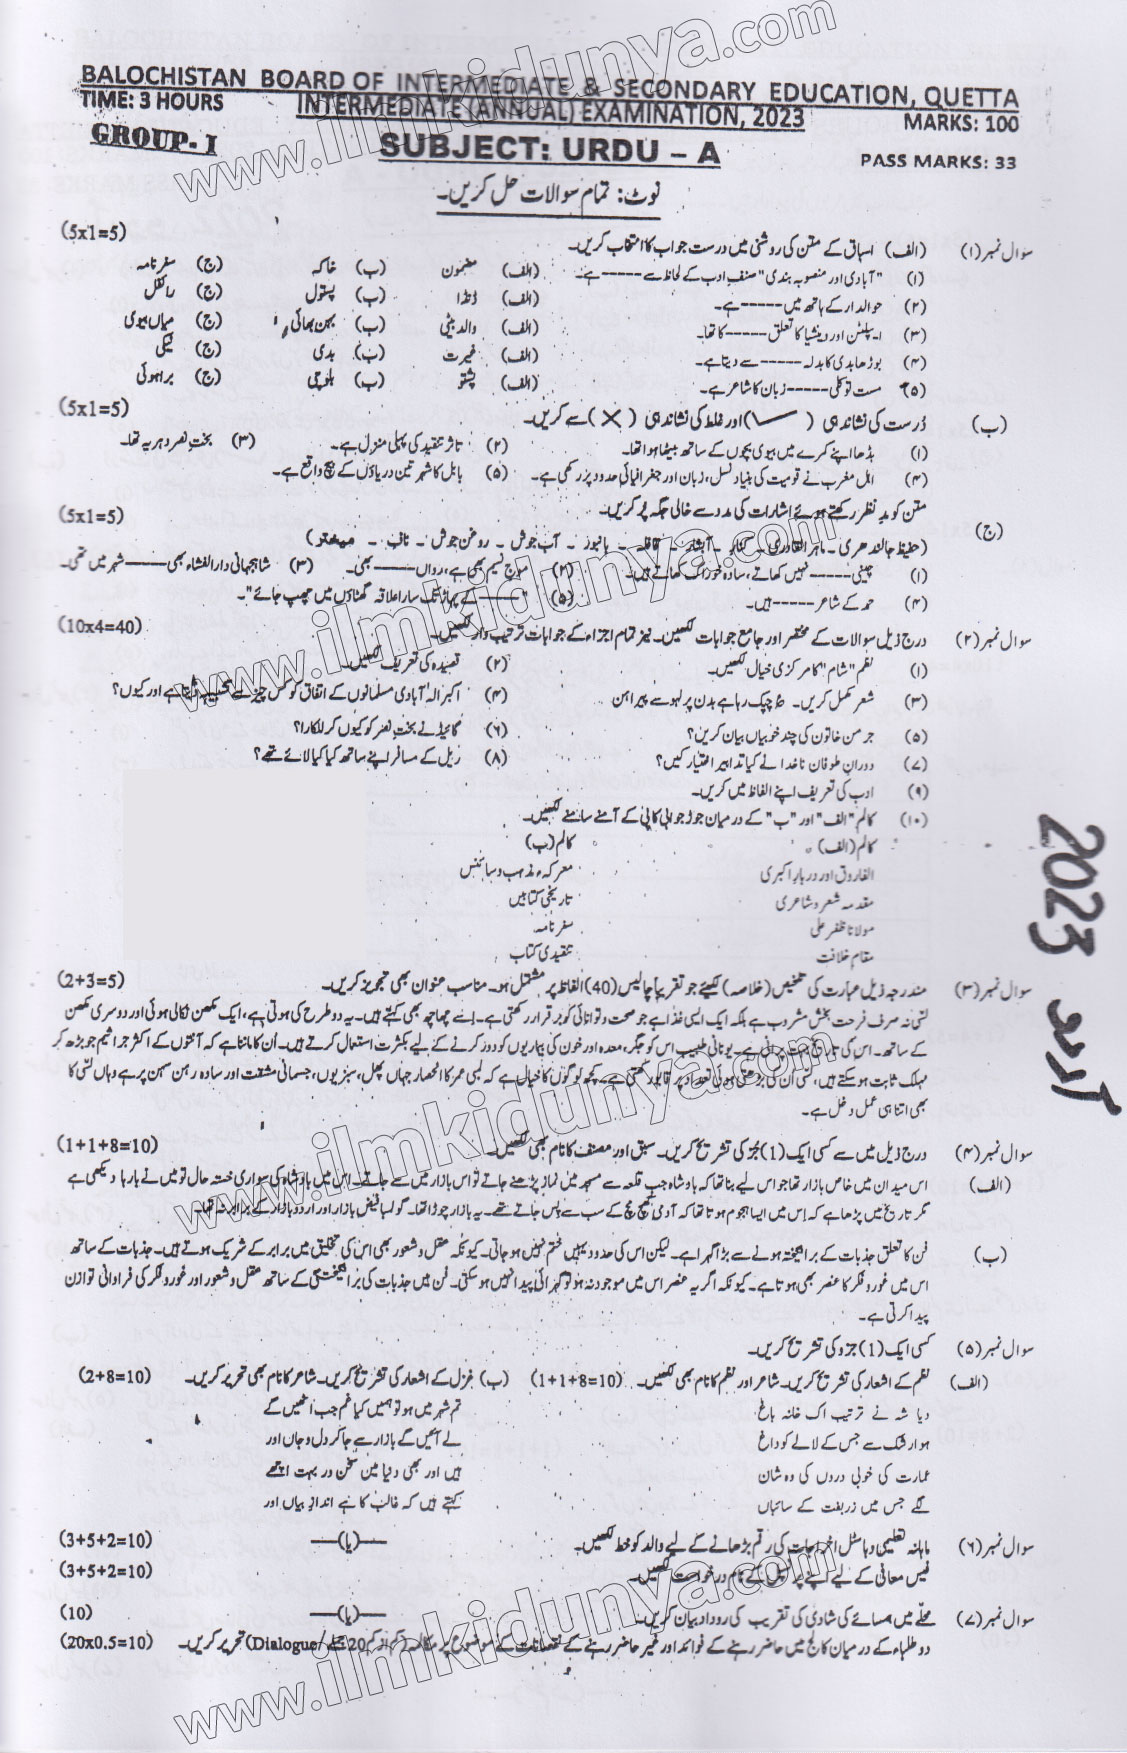 BALOCHISTAN BOARD OF INTERMEDIATE & SECONDARY EDUCATION, QUETTA
TIME: 3 HOURS INTERMEDIATE (ANNUAL) EXAMINATION, 2023 MARKS: 100
GROUP-I SUBJECT: URDU – A PASS MARKS: 33
نوٹ: تمام سوالات حل کریں۔
سوال نمبر (۱) (الف) اسباق کے متن کی روشنی میں درست جواب کا انتخاب کریں۔ (5x1=5)
(۱) "آبادی اور منصوبہ بندی" صنف ادب کے لحاظ سے ----- ہے۔ (الف) مضمون (ب) خاکہ (ج) سفرنامہ
(۲) حوالدار کے ہاتھ میں ----- ہے۔ (الف) ڈنڈا (ب) پستول (ج) رائفل
(۳) اسپلٹن اور دینشیا کا تعلق ----- کا تھا۔ (الف) والد بیٹی (ب) بہن بھائی (ج) میاں بیوی
(۴) بوڑھا بدی کا بدلہ ----- سے دیتا ہے۔ (الف) غیرت (ب) بدی (ج) نیکی
(۵) مست توکلی ----- زبان کا شاعر ہے۔ (الف) پشتو (ب) بلوچی (ج) براہوئی
(ب) دُرست کی نشاندہی ( ✓ ) اور غلط کی نشاندہی ( ✗ ) سے کریں۔ (5x1=5)
(۱) بڈھا اپنے کمرے میں بیوی بچوں کے ساتھ بیٹھا ہوا تھا۔ (۲) تاثر تنقید کی پہلی منزل ہے۔ (۳) بخت نصر دہریہ تھا۔
(۴) اہل مغرب نے قومیت کی بنیاد نسل، زبان اور جغرافیائی حدود پر رکھی ہے۔ (۵) بابل کا شہر تین دریاؤں کے بیچ واقع ہے۔
(ج) متن کو مدِ نظر رکھتے ہوئے اشارات کی مدد سے خالی جگہ پُر کریں۔ (5x1=5)
(حفیظ جالندھری۔ ماہر القادری۔ کنار۔ آبشار۔ قافلہ۔ آب جوش۔ روغن جوش۔ ناف۔
(۱) چینی ----- نہیں کھاتے، سادہ خوراک کھاتے ہیں۔ (۲) موج نسیم بھی ہے، رواں ----- بھی۔ (۳) شاہجہانی دارالشفاء بھی ----- شہر میں تھی۔
(۴) حمد کے شاعر ----- ہیں۔ (۵) "----- کے پہاڑ تک سارا علاقہ گھٹاؤں میں چھپ جائے"۔
سوال نمبر (۲) درج ذیل سوالات کے مختصر اور جامع جوابات لکھیں۔ نیز تمام اجزاء کے جوابات ترتیب وار لکھیں۔ (10x4=40)
(۱) نظم "شام" کا مرکزی خیال لکھیں۔ (۲) قصیدہ کی تعریف لکھیں۔
(۳) شعر مکمل کریں۔ ع چپک رہا ہے بدن پر لہو سے پیراہن (۴) اکبر الٰہ آبادی مسلمانوں کے اتفاق کو کس چیز سے تشبیہ دیتا ہے اور کیوں؟
(۵) جرمن خاتون کی چند خوبیاں بیان کریں؟ (۶) گائیڈ نے بخت نصر کو کیوں کر للکارا؟
(۷) دورانِ طوفان ناخدا نے کیا تدابیر اختیار کیں؟ (۸) ریل کے مسافر اپنے ساتھ کیا کیا لائے تھے؟
(۹) ادب کی تعریف اپنے الفاظ میں کریں۔
(۱۰) کالم "الف" اور "ب" کے درمیان جوڑ جوابی کاپی کے آمنے سامنے لکھیں۔
کالم (الف) کالم (ب)
الفاروق اور دربارِ اکبری معرکہ مذہب و سائنس
مقدمہ شعر و شاعری تاریخی کتابیں
مولانا ظفر علی سفرنامہ
مقام خلافت تنقیدی کتاب
سوال نمبر (۳) مندرجہ ذیل عبارت کی تلخیص (خلاصہ) کیجئے جو تقریباً چالیس (40) الفاظ پر مشتمل ہو۔ مناسب عنوان بھی تجویز کریں۔ (2+3=5)
لسّی نہ صرف فرحت بخش مشروب ہے بلکہ ایک ایسی غذا ہے جو صحت و توانائی کو برقرار رکھتی ہے۔ اسے چھاچھ بھی کہتے ہیں۔ یہ دو طرح کی ہوتی ہے، ایک مکھن نکالی ہوئی اور دوسری مکھن
کے ساتھ۔ اس کی تاریخ بہت پرانی ہے۔ یونانی طبیب اس کو جگر، معدہ اور خون کی بیماریوں کو دور کرنے کے لیے بکثرت استعمال کرتے ہیں۔ اُن کا ماننا ہے کہ آنتوں کے اکثر جراثیم جو بڑھ کر
مہلک ثابت ہو سکتے ہیں، لسی اُن کی بڑھتی ہوئی تعداد پر قابو رکھتی ہے۔ کچھ لوگوں کا خیال ہے کہ لمبی عمر کا انحصار جہاں پھل، سبزیوں، جسمانی مشقت اور سادہ رہن سہن پر ہے وہاں لسّی کا
بھی اتنا ہی عمل دخل ہے۔
سوال نمبر (۴) درج ذیل میں سے کسی ایک (1) جُز کی تشریح کریں۔ سبق اور مصنف کا نام بھی لکھیں۔ (1+1+8=10)
(الف) اس میدان میں خاص بازار تھا جو اس لیے بنا تھا کہ بادشاہ جب قلعہ سے مسجد میں نماز پڑھنے جاتے تو اس بازار میں سے جاتے۔ اس میں بادشاہ کی سواری خستہ حال تو میں نے بارہا دیکھی ہے
مگر تاریخ میں پڑھا ہے کہ اس میں ایسا ہجوم ہوتا تھا کہ آدمی کھچ کھچ کے سب سے پس جاتے تھے۔ یہ بازار چوڑا تھا۔ گو لمبا فیض بازار اور اردو بازار کے برابر نہ تھا۔
(ب) فن کا تعلق جذبات کے برانگیختہ ہونے سے بڑا گہرا ہے۔ لیکن اس کی حدود یہیں ختم نہیں ہو جاتی۔ کیونکہ عقل و شعور بھی اس کی تخلیق میں برابر کے شریک ہوتے ہیں۔ جذبات کے ساتھ
اس میں غور و فکر کا عنصر بھی ہوتا ہے۔ کیونکہ اگر یہ عنصر اس میں موجود نہ ہو تو گہرائی پیدا نہیں ہو سکتی۔ فن میں جذبات کی برانگیختگی کے ساتھ عقل و شعور اور غور و فکر کی فراوانی توازن
پیدا کرتی ہے۔
سوال نمبر (۵) کسی ایک (1) جزو کی تشریح کریں۔
(الف) نظم کے اشعار کی تشریح کریں۔ شاعر اور نظم کا نام بھی لکھیں۔ (1+1+8=10) (ب) غزل کے اشعار کی تشریح کریں۔ شاعر کا نام بھی تحریر کریں۔ (2+8=10)
دیا شہ نے ترتیب اک خانہ باغ تم شہر میں ہو تو ہمیں کیا غم جب اٹھیں گے
ہوا رشک سے جس کے لالے کو داغ لے آئیں گے بازار سے جا کر دل و جاں اور
عمارت کی خوبی دروں کی وہ شان ہیں اور بھی دنیا میں سخن ور بہت اچھے
لگے جس میں زربفت کے سائباں کہتے ہیں کہ غالب کا ہے اندازِ بیاں اور
سوال نمبر (۶) ماہانہ تعلیمی و ہاسٹل اخراجات کی رقم بڑھانے کے لیے والد کو خط لکھیں۔ —(یا)— (3+5+2=10)
فیس معافی کے لیے اپنے پرنسپل کے نام درخواست لکھیں۔ (3+5+2=10)
سوال نمبر (۷) محلے میں ہمسائے کی شادی کی تقریب کی روداد بیان کریں۔ —(یا)— (10)
دو طلباء کے درمیان کالج میں حاضر رہنے کے فوائد اور غیر حاضر رہنے کے نقصانات کے موضوع پر مکالمہ (کم از کم 20 جملے/Dialogue) تحریر کریں۔ (20x0.5=10)
2023 اردو
www.ilmkidunya.com
www.ilmkidunya.com
www.ilmkidunya.com
www.ilmkidunya.com